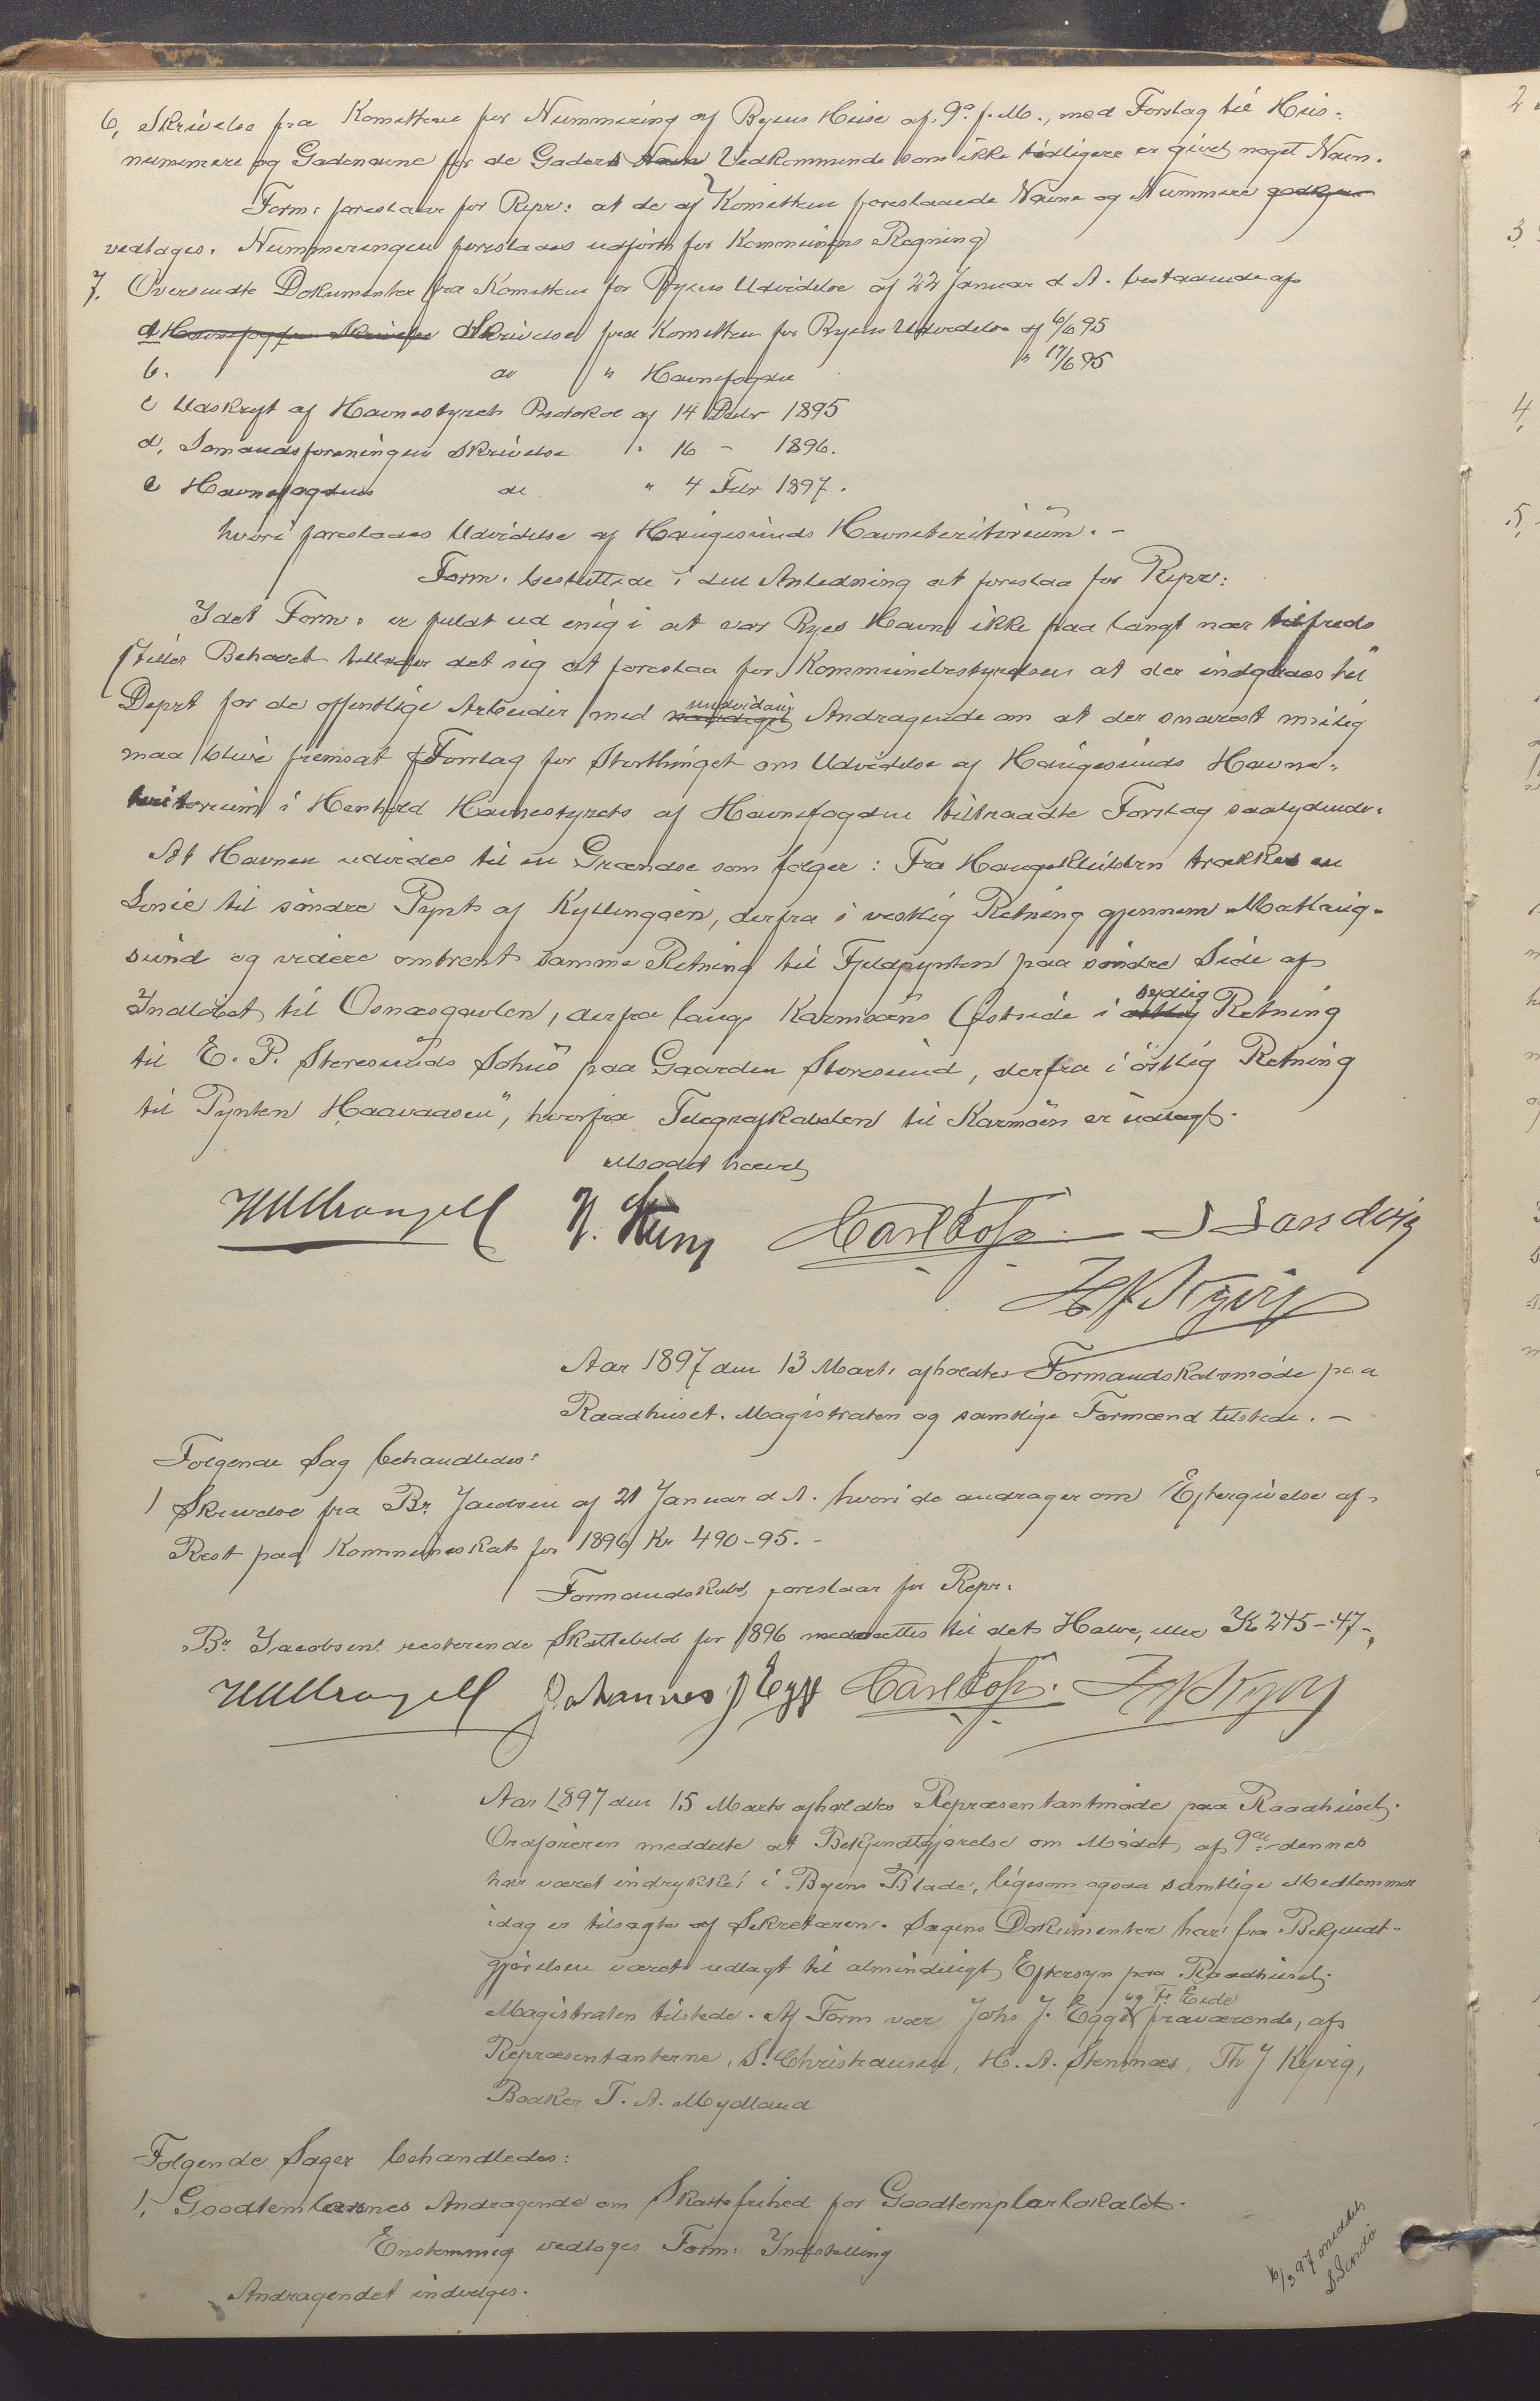 6, Skrivelse fra Komitteen for Nummering af Byens Huse af 9de f. M., med Forslag til Hus-
nummere og Gadenavne for de Gaders Navn Vedkommende som ikke tidligere er givet noget Navn.
Form: foreslaar for Repr: at de af Komitteen foreslaaede Navne og Nummere godkjen
vedtages. Nummeringen foreslaaes udført for Kommunens Regning
7. Oversendte Dokumenter fra Komitteen for Byens Udvidelse af 22 Januar d A. bestaaende af
a Havnefogfen Skrivelse Skrivelse fra Komitteen for Byens Udvidelse af 6/6 95
b. do " Havnefogden " 17/6 95
c Udskrift af Havnestyrets Protokol af 14 Debr 1895
d, Sømandsforeningens Skrivelse " 16 - 1896.
e Havnefogdens do " 4 Febr 1897.
hvori foreslaaes Udvidelse af Haugesunds Havneteritorium. -
Form. besluttede i den Anledning at foreslaa for Repr:
Idet Form. er fuldt ud enig i at vor Byes Havn ikke paa langt nær tilfreds
stiller Behovet tillader det sig at foreslaa for Kommunebestyrelsen at der indgaaes til
Deprt for de offentlige Arbeider med underdanig Andragende om at der snarest mulig
maa blive fremsat Forslag for Storthinget om Udvidelse af Haugesunds Havne-
teritorium i Henhold Havnestyrets af Havnefogden tiltraadte Forslag saalydende:
At Havnen udvides til en Grændse som følger: Fra Haugeskilden trækkes en
Linie til søndre Pynt af Kyllingøen, derfra i vestlig Retning gjennem Matlaug-
sund og videre omtrent samme Retning til Fjeldpynten paa søndre Side af
Indløbet til Osnæsgavlen, derfra langs Karmøens Østside i sydlig Retning
til E. P. Storesunds Søhus paa Gaarden Storesund, derfra i østlig Retning
til Pynten "Haavaasen", hvorfra Telegrafkabelen til Karmøen er udlagt.
Mødet hævet
Carl Foss J Sandvig
Aar 1897 den 13 Marts afholdtes Formandskabsmøde paa
Raadhuset. Magistraten og samtlige Formænd tilstede. -
Følgende Sag behandledes:
1 Skrivelse fra Br. Jacobsen af 21 Januar d A. hvori de andrager om Eftergivelse af
Rest paa Kommuneskat for 1896 Kr 490-95. -
Formandskabet foreslaar for Repr.
Br. Jacobsens resterende Skattebeløb for 1896 nedsættes til det Halve, eller Kr 245-47-,
Johannes J Egge Carl Foss
Aar 1897 den 15 Marts afholdtes Repræsentantmøde paa Raadhuset.
Ordføreren meddelte at Bekjendtgjørelse om Mødet af 9de dennes
har været indrykket i Byens Blade, ligesom ogsaa samtlige Medlemmer
idag er tilsagte af Sekretæren. Sagens Dokumenter har fra Bekjendt-
gjørelsen været udlagt til almindeligt Eftersyn paa Raadhuset.
Magistraten tilstede. Af Form var Johs J. Egge og Fr. Eide fraværende, af
Repræsentanterne, S. Christensen, H. A. Stensnæs, Th J Kyvig,
Bødker T. A. Mydland
Følgende Sager behandledes:
1, Goodtemlarnes Andragende om Skattefrihed for Goodtemplarlokalet.
Enstemmig vedtages Form: Indstilling
Andragendet indvilges.